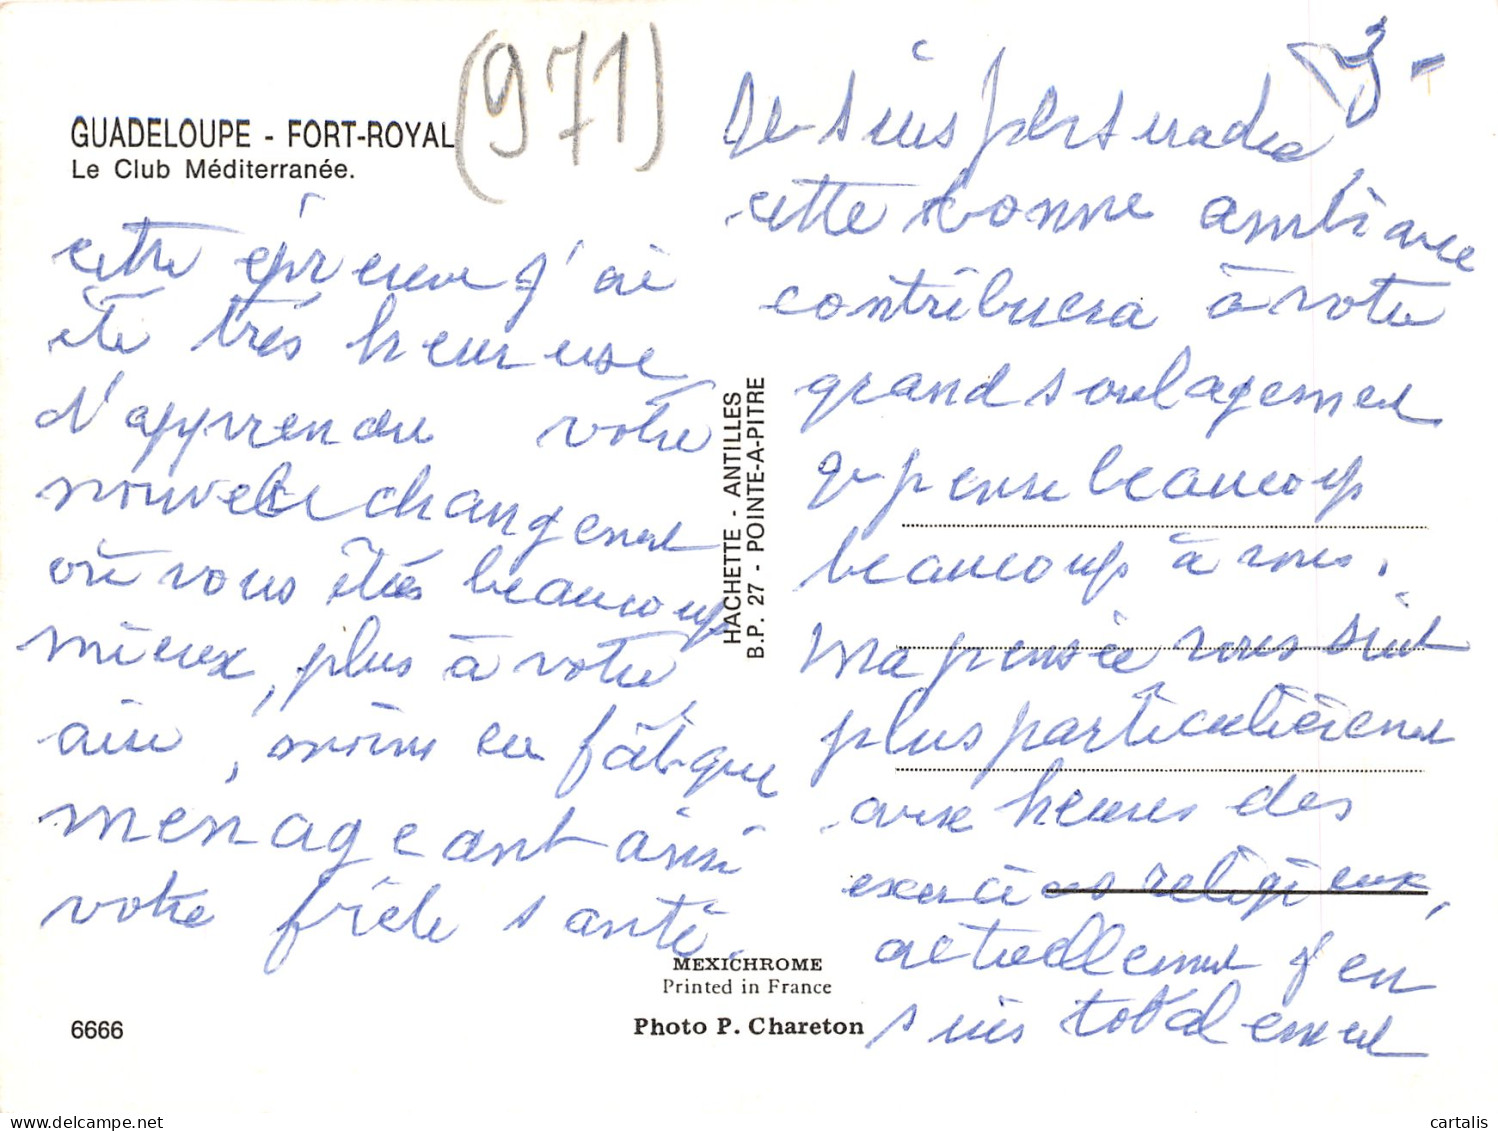 GUADELOUPE - FORT-ROYAL
Le Club Méditerranée.
(971)
cette épreuve j'ai
été très heureuse
d'apprendre votre
nouvelle changement
où vous êtes beaucoup
mieux, plus à votre
aise, moins en fatigue
menageant ainsi
votre frêle santé.
6666
HACHETTE - ANTILLES
B.P. 27 - POINTE-A-PITRE
MEXICHROME
Printed in France
Photo P. Chareton
3 -
Je suis persuadée
cette bonne ambiance
contribuera à votre
grand soulagement
je pense beaucoup
beaucoup à vous.
Ma pensée vous suit
plus particulièrement
aux heures des
exercices religieux,
actuellement j'en
suis totalement
cartalis